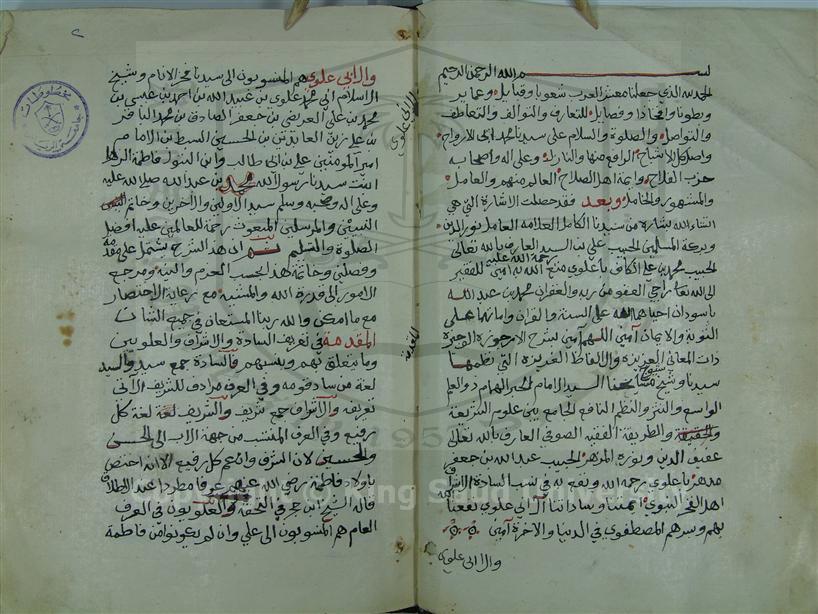 بسم الله الرحمن الرحيم
الحمد لله الذي جعلنا معشر العرب شعوبا وقبايل وعماير
وبطونا وافخاذا وفصايل للتعارف والتوالف والتعاطف
والتواصل والصلوة والسلام على سيدنا محمد ابي الارواح
واصل كل الاشباح الرافع منها والنازل وعلى اله واصحابه
حزب الفلاح وايمة اهل الصلاح العالم منهم والعامل
والمشهور والخامل وبعد فقد حصلت الاشارة التي هي
ان شاء الله بشارة من سيدنا الكامل العلامه العامل نور الدين
وبركة المسلمين الحبيب علي بن السيد العارف بالله تعالى
الحبيب محمد بن علي الكاف باعلوي رحمة الله عليه منع الله به آمين للفقير
الى الله تعالى راجي العفو من ربه والغفران محمد بن عبد الله
باسودان احياهما الله على السنة والقران واماتهما على
التوبة والايمان آمين اللهم آمين بشرح الارجوزة الوجيزة
ذات المعاني العزيزة والالفاظ الغزيرة التي نظمها
سيدنا وشيخ شيوخ مشايخنا السيد الامام الحبر الهمام ذو العلم
الواسع والنثر والنظم النافع الجامع بين علوم الشريعة
والحقيقة والطريقة الفقيه الصوفي العارف بالله تعالى
عفيف الدين ونوره المزهر الحبيب عبد الله بن جعفر
مدهر باعلوي رحمه الله ونفع به في نسب السادة الاشراف
اهل الفخر النبوي ايمتنا وساداتنا آل ابي علوي نفعنا
بهم وبسرهم المصطفوي في الدنيا والاخرة آمين
وال ابي علوي
٢
وال ابي علوي هم المنسوبون الى سيدنا فخر الانام وشيخ
الاسلام ابي محمد علوي بن عبيد الله بن احمد بن عيسى بن
محمد بن علي العريضي بن جعفر الصادق بن محمد الباقر
بن علي زين العابدين بن الحسين السبط بن الامام
امير المومنين علي بن ابي طالب وابن البتول فاطمة الزهرا
ابنت سيدنا رسول الله محمد بن عبد الله صلى الله عليه
وعلى اله وصحبه وسلم سيد الاولين والآخرين وخاتم
النبيين والمرسلين المبعوث رحمة للعالمين عليه افضل
الصلوة والتسليم ثم ان هذا الشرح يشتمل على مقدمة
وفصلين وخاتمة هذا بحسب العزم والنية ومرجع
الامور الى قدرة الله والمشيئه مع رعاية الاختصار
مع ما امكن والله ربنا المستعان في جميع الشان
المقدمة في تعريف السادة والاشراف والعلويين
وما يتعلق بهم وينسبهم فالسادة جمع سيد والسيد
لغة من ساد قومه وفي العرف مرادف للشريف الآتي
تعريفه والاشراف جمع شريف والشريف لغة كل
رفيع وفي العرف المنتسب من جهة الاب الى الحسن
والحسين لان الشرف وان عم كل رفيع الا انه اختص
باولاد فاطمة رضي الله عنهم عرفا مطردا عند الاطلاق
قاله الشيخ ابن حجر في التحفة والعلويون في العرف
العام هم المنسوبون الى علي وان لم يكونوا من فاطمة
وال ابي علوي
المقدمة
مخطوطات
Copyright © King Saud University
1957